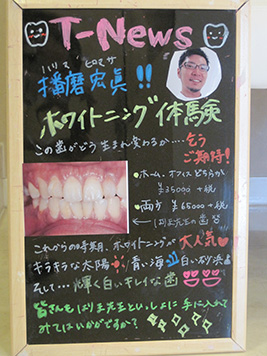 T-News
ハリマ ヒロマサ
播磨宏眞!!
ホワイトニング体験
この歯がどう生まれ変わるか…乞う
ご期待!
・ホーム、オフィスどちらか
¥35000 +税
・両方 ¥65000 +税
← はりま先生の歯
これからの時期、ホワイトニングが大人気♥
キラキラな太陽 青い海 白い砂浜
そして… 輝く白いキレイな歯
皆さんもはりま先生といっしょに手に入れて
みてはいかがですか?